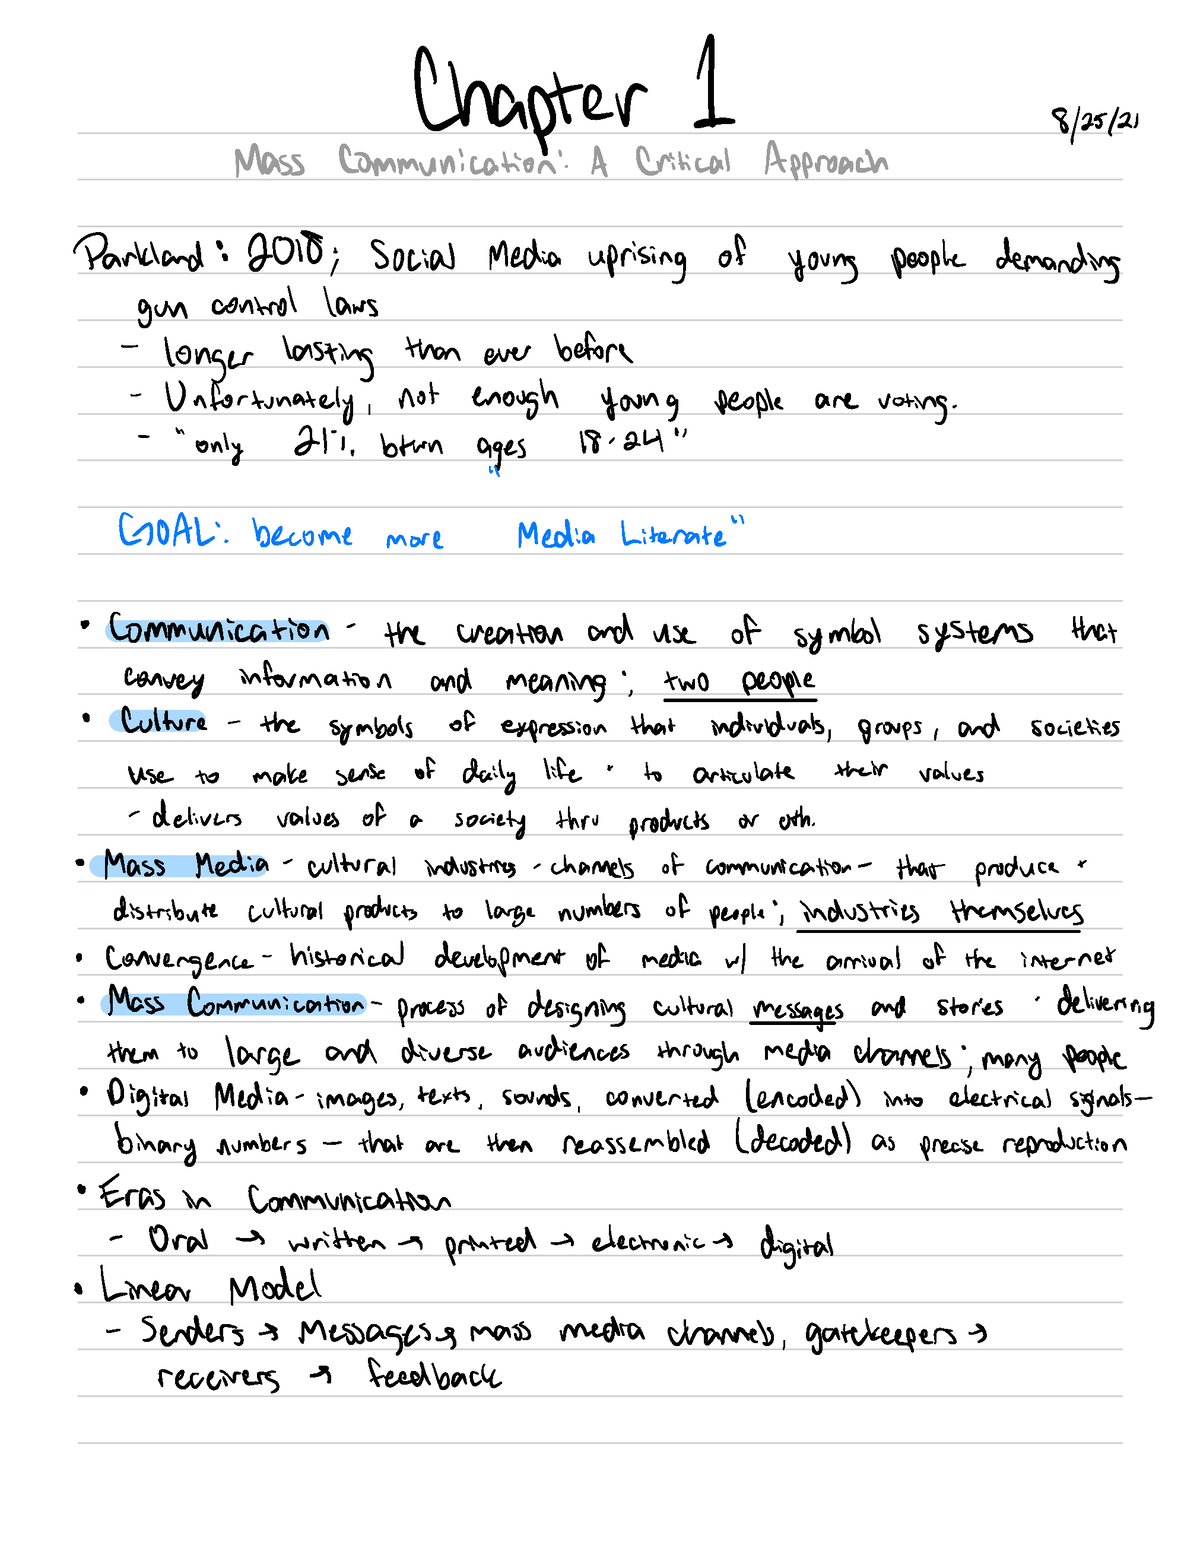 Chapter 1
8/25/21
Mass Communication: A Critical Approach
Parkland: 2018; Social Media uprising of young people demanding
gun control laws
- longer lasting than ever before
- Unfortunately, not enough young people are voting.
- "only 21%. btwn ages 18-24"
GOAL: become more "Media Literate"
• Communication - the creation and use of symbol systems that
convey information and meaning; two people
• Culture - the symbols of expression that individuals, groups, and societies
use to make sense of daily life · to articulate their values
- delivers values of a society thru products or oth.
• Mass Media - cultural industries - channels of communication - that produce +
distribute cultural products to large numbers of people; industries themselves
• Convergence - historical development of media w/ the arrival of the internet
• Mass Communication - process of designing cultural messages and stories · delivering
them to large and diverse audiences through media channels; many people
• Digital Media - images, texts, sounds, converted (encoded) into electrical signals -
binary numbers - that are then reassembled (decoded) as precise reproduction
• Eras in Communication
- Oral → written → printed → electronic → digital
• Linear Model
- Senders → Messages → mass media channels, gatekeepers →
receivers → feedback